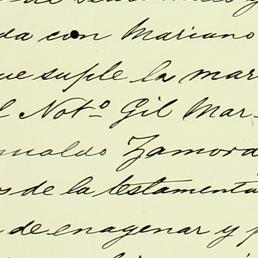 da con Mariano
que suple la mar
l Not.º Gil Mar-
nualdo Zamora
s de la testamenta
de enagenar y p